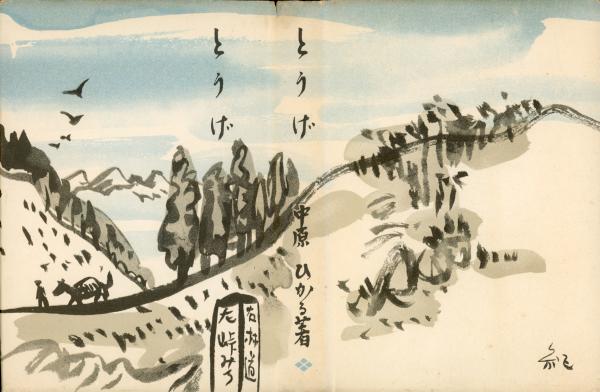 とうげ
とうげ
中原ひかる著
右村道
左峠みち